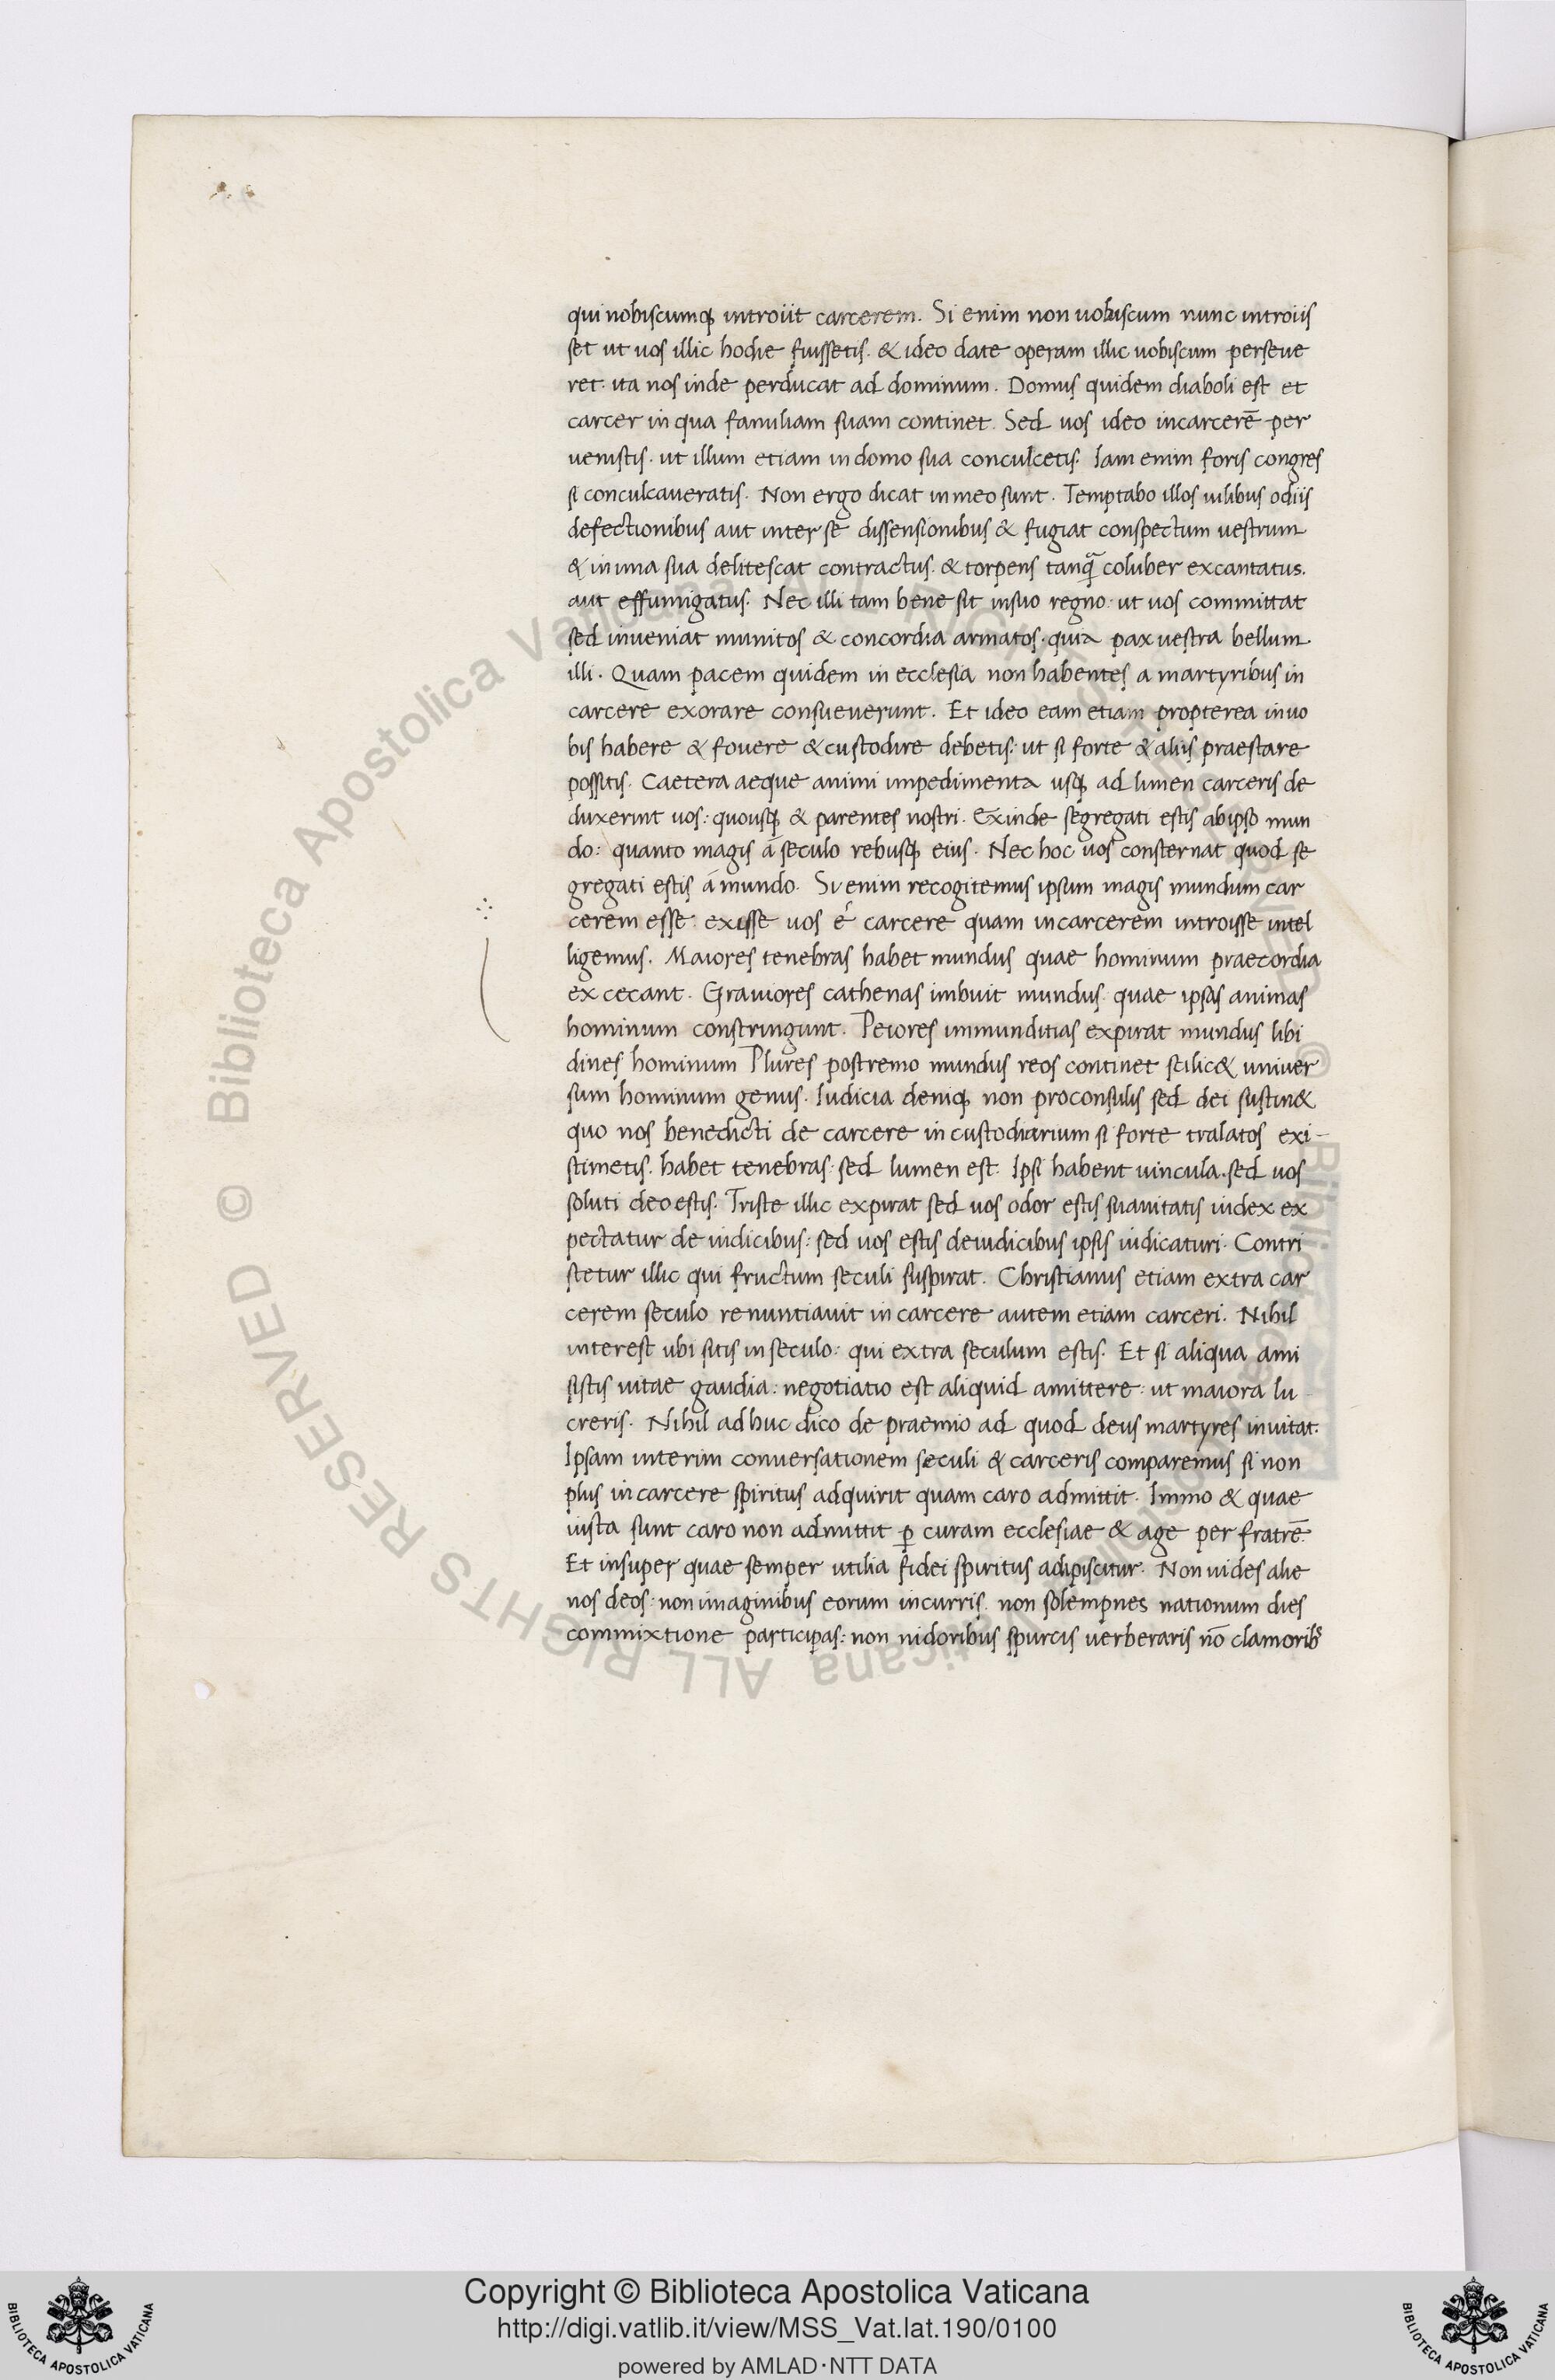 qui nobiscumqꝫ introiit carcerem. Si enim non uobiscum nunc introiis
set ut uos illic hodie fuissetis. & ideo date operam illic uobiscum perseue
ret. ita nos inde perducat ad dominum. Domus quidem diaboli est et
carcer in qua familiam suam continet. Sed uos ideo in carcerē per
uenistis. ut illum etiam in domo sua conculcetis. Iam enim foris congres
si conculcaueratis. Non ergo dicat in meo sunt. Temptabo illos uilibus odiis
defectionibus aut inter se dissensionibus & fugiat conspectum uestrum
& in ima sua delitescat contractus. & torpens tanqᷓ coluber excantatus.
aut effumigatus. Nec illi tam bene sit in suo regno. ut uos committat
sed inueniat munitos & concordia armatos. quia pax uestra bellum.
illi. Quam pacem quidem in ecclesia non habentes a martyribus in
carcere exorare consueuerunt. Et ideo eam etiam propterea in uo
bis habere & fouere & custodire debetis: ut si forte & aliis praestare
possitis. Caetera aeque animi impedimenta usqꝫ ad limen carceris de
duxerint uos: quousqꝫ & parentes nostri. Exinde segregati estis ab ipso mun
do: quanto magis á seculo rebusqꝫ eius. Nec hoc uos consternat quod se
gregati estis á mundo. Si enim recogitemus ipsum magis mundum car
cerem esse: exisse uos é carcere quam in carcerem introisse intel
ligemus. Maiores tenebras habet mundus quae hominum praecordia
excecant. Grauiores cathenas imbuit mundus. quae ipsas animas
hominum constringunt. Peiores immunditias expirat mundus libi
dines hominum Plures postremo mundus reos continet scilic& univer
sum hominum genus. Iudicia deniqꝫ non proconsulis sed dei sustin&
quo nos benedicti de carcere in custodiarium si forte tralatos exi-
stimetis. habet tenebras: sed lumen est. Ipsi habent uincula. sed uos
soluti deo estis. Triste illic expirat sed uos odor estis suauitatis iudex ex
pectatur de iudicibus: sed uos estis de iudicibus ipsis iudicaturi. Contri
stetur illic qui fructum seculi suspirat. Christianus etiam extra car
cerem seculo renuntiauit in carcere autem etiam carceri. Nihil
interest ubi sitis in seculo: qui extra seculum estis. Et si aliqua ami
sistis uitae gaudia: negotiatio est aliquid amittere: ut maiora lu
creris. Nihil adhuc dico de praemio ad quod deus martyres inuitat.
Ipsam interim conuersationem seculi & carceris comparemus si non
plus in carcere spiritus adquirit quam caro admittit. Immo & quae
iusta sunt caro non admittit ꝑ curam ecclesiae & age per fratrē.
Et insuper quae semper utilia fidei spiritus adipiscitur. Non uides alie
nos deos: non imaginibus eorum incurris. non solempnes nationum dies
commixtione participas: non nidoribus spurcis uerberaris nō clamoribꝰ
Copyright © Biblioteca Apostolica Vaticana
http://digi.vatlib.it/view/MSS_Vat.lat.190/0100
powered by AMLAD·NTT DATA
BIBLIOTECA APOSTOLICA VATICANA
BIBLIOTECA APOSTOLICA VATICANA
© Biblioteca Apostolica Vaticana ALL RIGHTS RESERVED